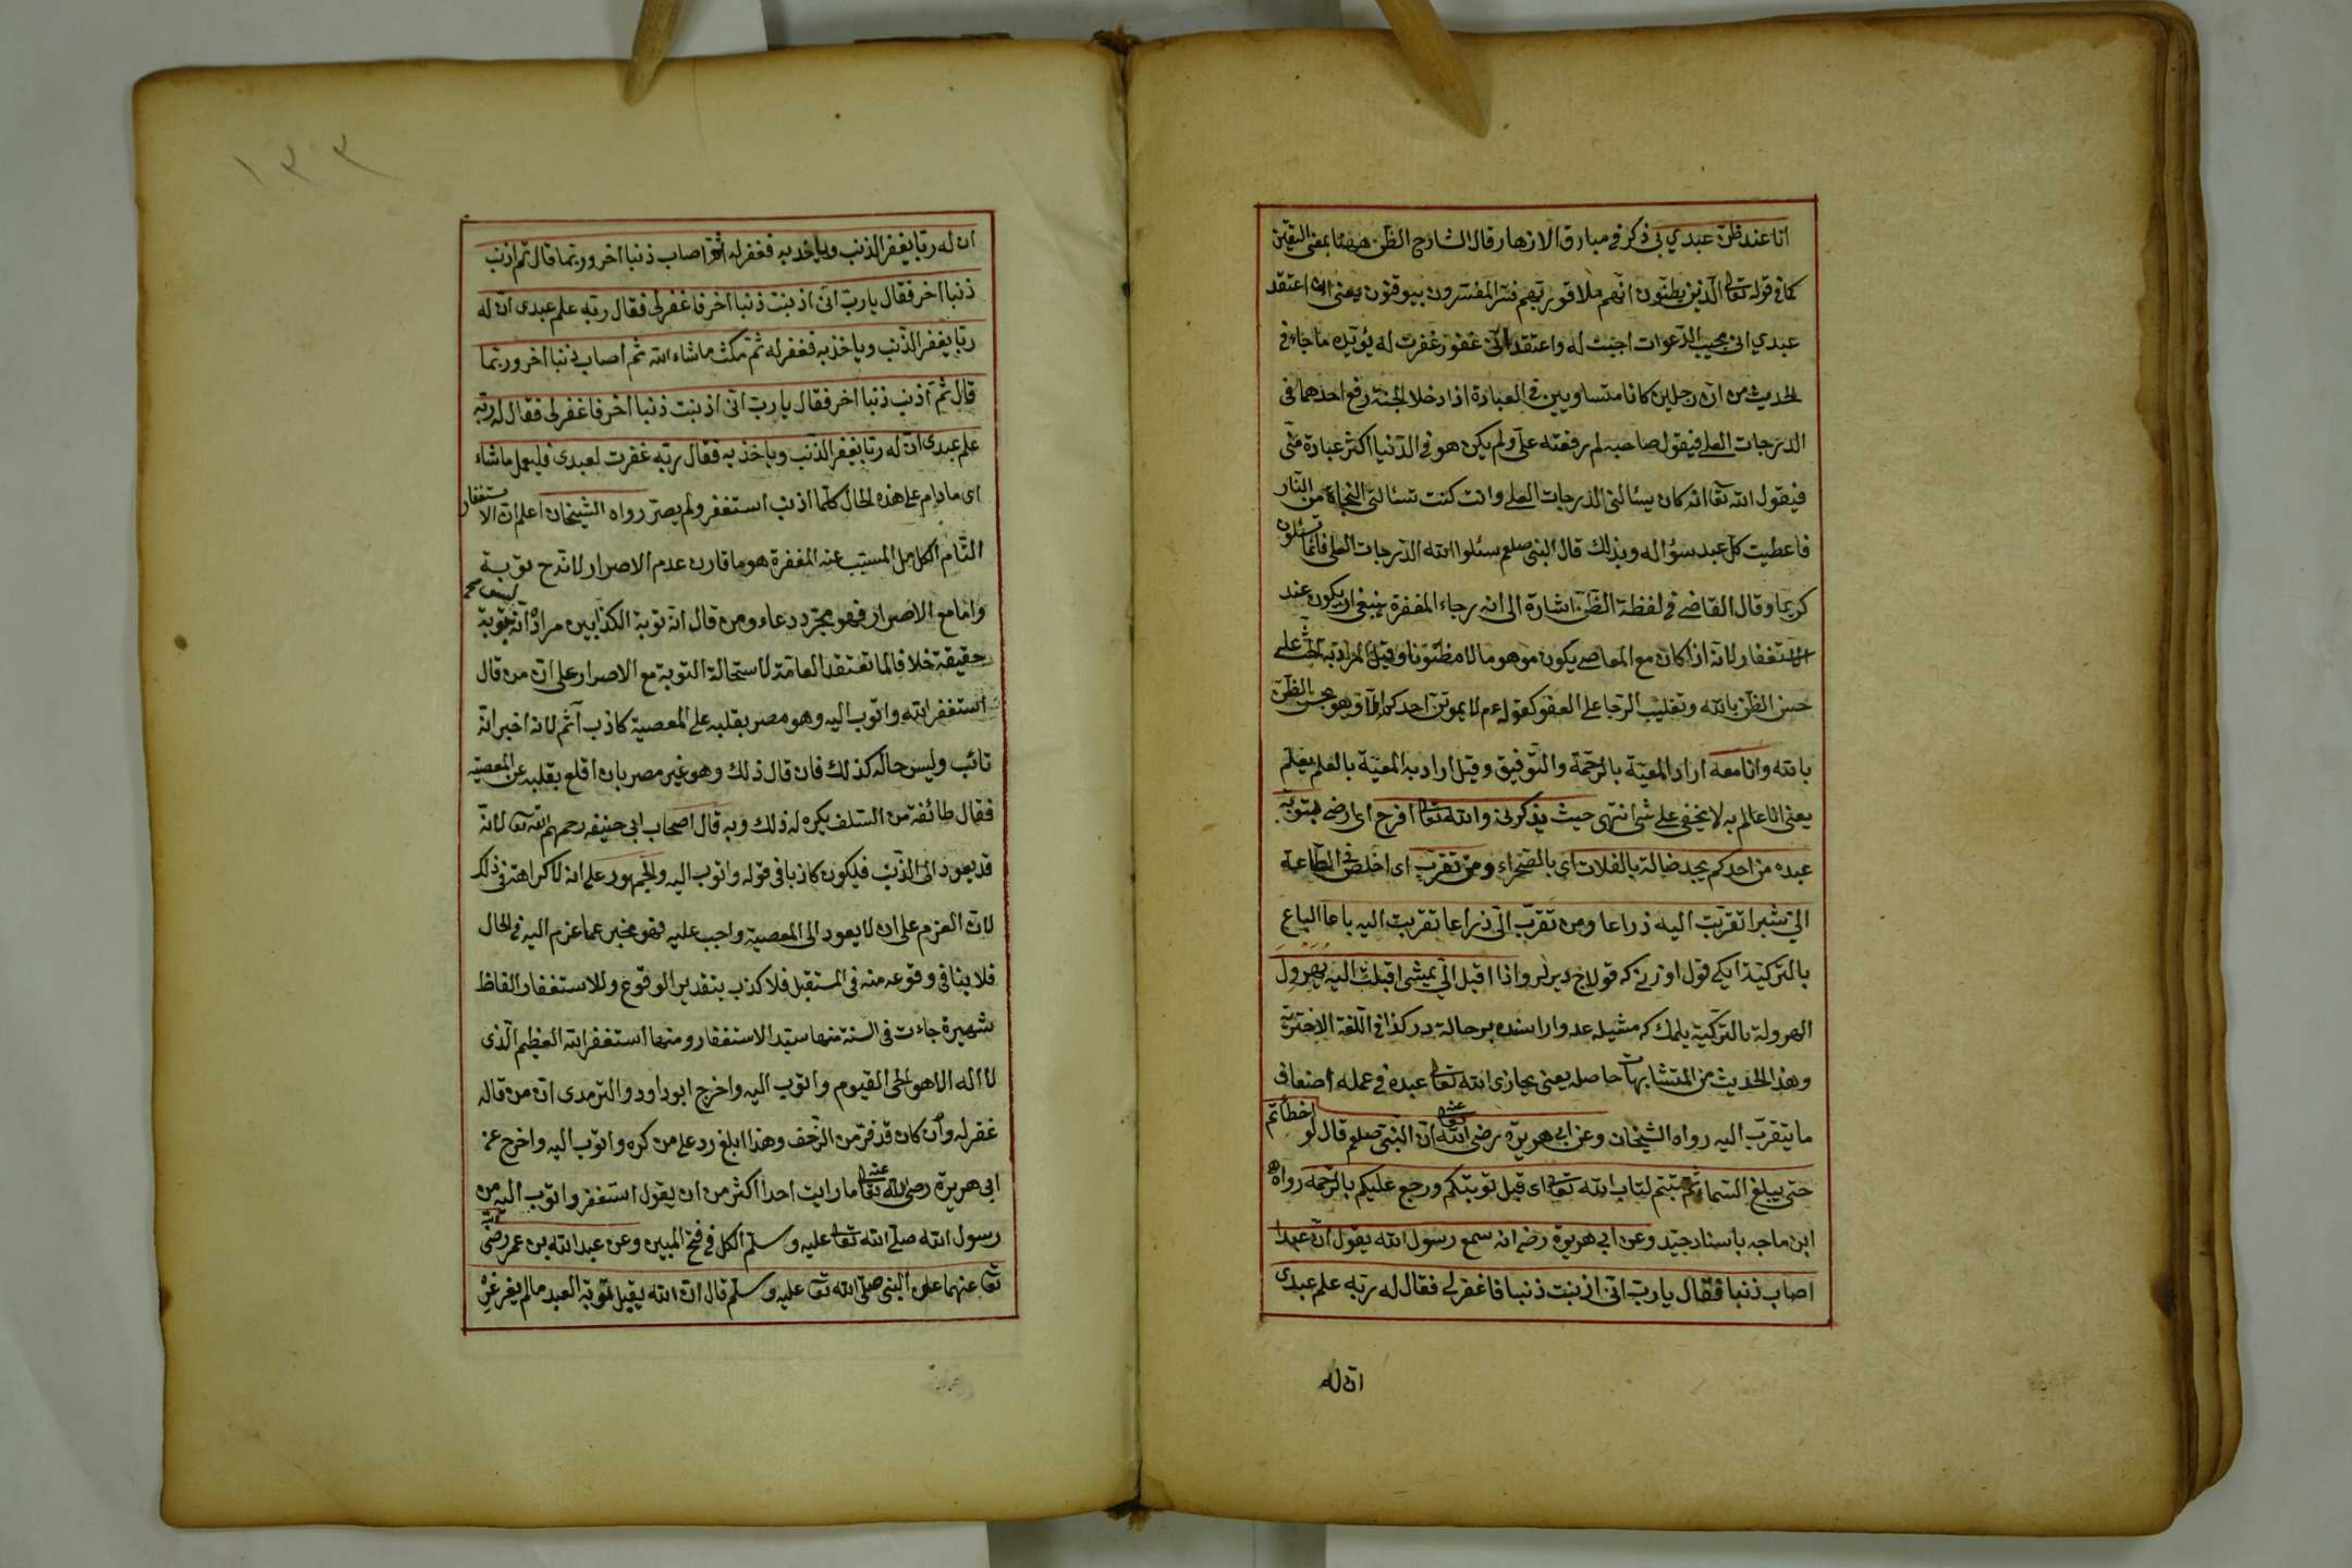 انا عند ظن عبدي بي ذكر في مبارق الازهار قال الشارح الظن ههنا بمعنى اليقين
كما في قوله تعالى الذين يظنون انهم ملاقو ربهم فسر المفسرون بيوقنون يعنى ان اعتقد
عبدي انى مجيب الدعوات اجبت له واعتقد انى غفور غفرت له يؤيده ما جاء في
الحديث من ان رجلين كانا متساويين في العبادة اذا دخلا الجنة رفع احدهما في
الدرجات العلى فيقول صاحبه لم رفعته علي ولم يكن هو في الدنيا اكثر عبادة منى
فيقول الله تعا انه كان يسئالنى الدرجات العلى وانت كنت تسئالنى النجاة من النار
فاعطيت كل عبد سؤاله وبذلك قال النبى صلعم سئلوا الله الدرجات العلى فانما تسئلون
كريما وقال القاضى في لفظة الظن اشارة الى انه رجاء المغفرة ينبغي ان يكون عند
الاستغفار لانه اذا كان مع المعاصى يكون موهوما لا مظنونا وقيل المراد به الحث على
حسن الظن بالله وتغليب الرجا على العفو كقوله عم لا يموتن احدكم الا وهو يحسن الظن
بالله وانا معه اراد المعية بالرحمة والتوفيق وقيل اراد به المعية بالعلم
يعنى انا عالم به لا يخفى على شئ انتهى حيث يذكرنى والله تعالى افرح اى ارضى بتوبة
عبده من احدكم يجد ضالة بالفلات اى بالصحراء ومن تقرب اى اخلص في الطاعة
الي شبرا تقربت اليه ذراعا ومن تقرب الى ذراعا تقربت اليه باعا الباع
بالتركية ايكى قول اوزنى كه قولاج ديرلر واذا اقبل الي يمشى اقبلت اليه يهرول
الهرولة بالتركية يلمك كه مشيله عدو اراسنده بر حالة در كذا في اللغة الاخترية
وهذا الحديث من المتشابهات حاصله يعنى يجازى الله تعالى عبده في عمله اضعاف
ما يتقرب اليه رواه الشيخان وعن ابى هريرة رضى الله تعا عنه ان النبى صلعم قال لو اخطأتم
حتى يبلغ السماء ثم تبتم لتاب الله تعالى اى قبل توبتكم ورجع عليكم بالرحمة رواه
ابن ماجه باسناد جيد وعن ابى هريرة رضه انه سمع رسول الله يقول ان عبدا
اصاب ذنبا فقال يا رب انى اذنبت ذنبا فاغفر لى فقال له ربه علم عبدى
ان له
١٣٣
ان له ربا يغفر الذنب وياخذ به فغفر له ثم اصاب ذنبا اخر وربما قال ثم اذنب
ذنبا اخر فقال يا رب انى اذنبت ذنبا اخر فاغفر لى فقال ربه علم عبدى ان له
ربا يغفر الذنب وياخذ به فغفر له ثم مكث ما شاء الله ثم اصاب ذنبا اخر وربما
قال ثم اذنب ذنبا اخر فقال يا رب انى اذنبت ذنبا اخر فاغفر لى فقال له ربه
علم عبدى ان له ربا يغفر الذنب وياخذ به فقال ربه غفرت لعبدى فليعمل ما شاء
اى مادام على هذه الحال كلما اذنب استغفر ولم يصر رواه الشيخان اعلم ان الاستغفار
التام الكامل المسبب عنه المغفرة هو ما قارن عدم الاصرار لانه ح توبة
واما مع الاصرار فهو مجرد دعاء ومن قال انه توبة الكذابين مراده انه ليس بتوبة
حقيقة خلافا لما تعتقد العامة لاستحالة التوبة مع الاصرار على ان من قال
استغفر الله واتوب اليه وهو مصر بقلبه على المعصية كاذب آثم لانه اخبر انه
تائب وليس حاله كذلك فان قال ذلك وهو غير مصر بان اقلع بقلبه عن المعصية
فقال طائفة من السلف يكره له ذلك وبه قال اصحاب ابى حنيفه رحمهم الله تعا لانه
قد يعود الى الذنب فيكون كاذبا في قوله واتوب اليه والجمهور على انه لا كراهة في ذلك
لان العزم على ان لا يعود الى المعصية واجب عليه فهو مخبر عما عزم اليه في الحال
فلا ينافى وقوعه منه في المستقبل فلا كذب بتقدير الوقوع وللاستغفار الفاظ
شهيرة جاءت في السنة منها سيد الاستغفار ومنها استغفر الله العظيم الذى
لا اله الا هو الحى القيوم واتوب اليه واخرج ابوداود والترمدى ان من قاله
غفر له وان كان قد فر من الزحف وهذا ابلغ رد على من كره واتوب اليه واخرج عن
ابى هريرة رضى الله تعا عنه ما رايت احدا اكثر من ان يقول استغفر واتوب اليه من
رسول الله صلى الله تعالى عليه وسلم الكل في فتح المبين وعن عبد الله بن عمر رضى الله
تعا عنهما عن النبى صلى الله تعا عليه وسلم قال ان الله يقبل توبة العبد مالم يغرغر